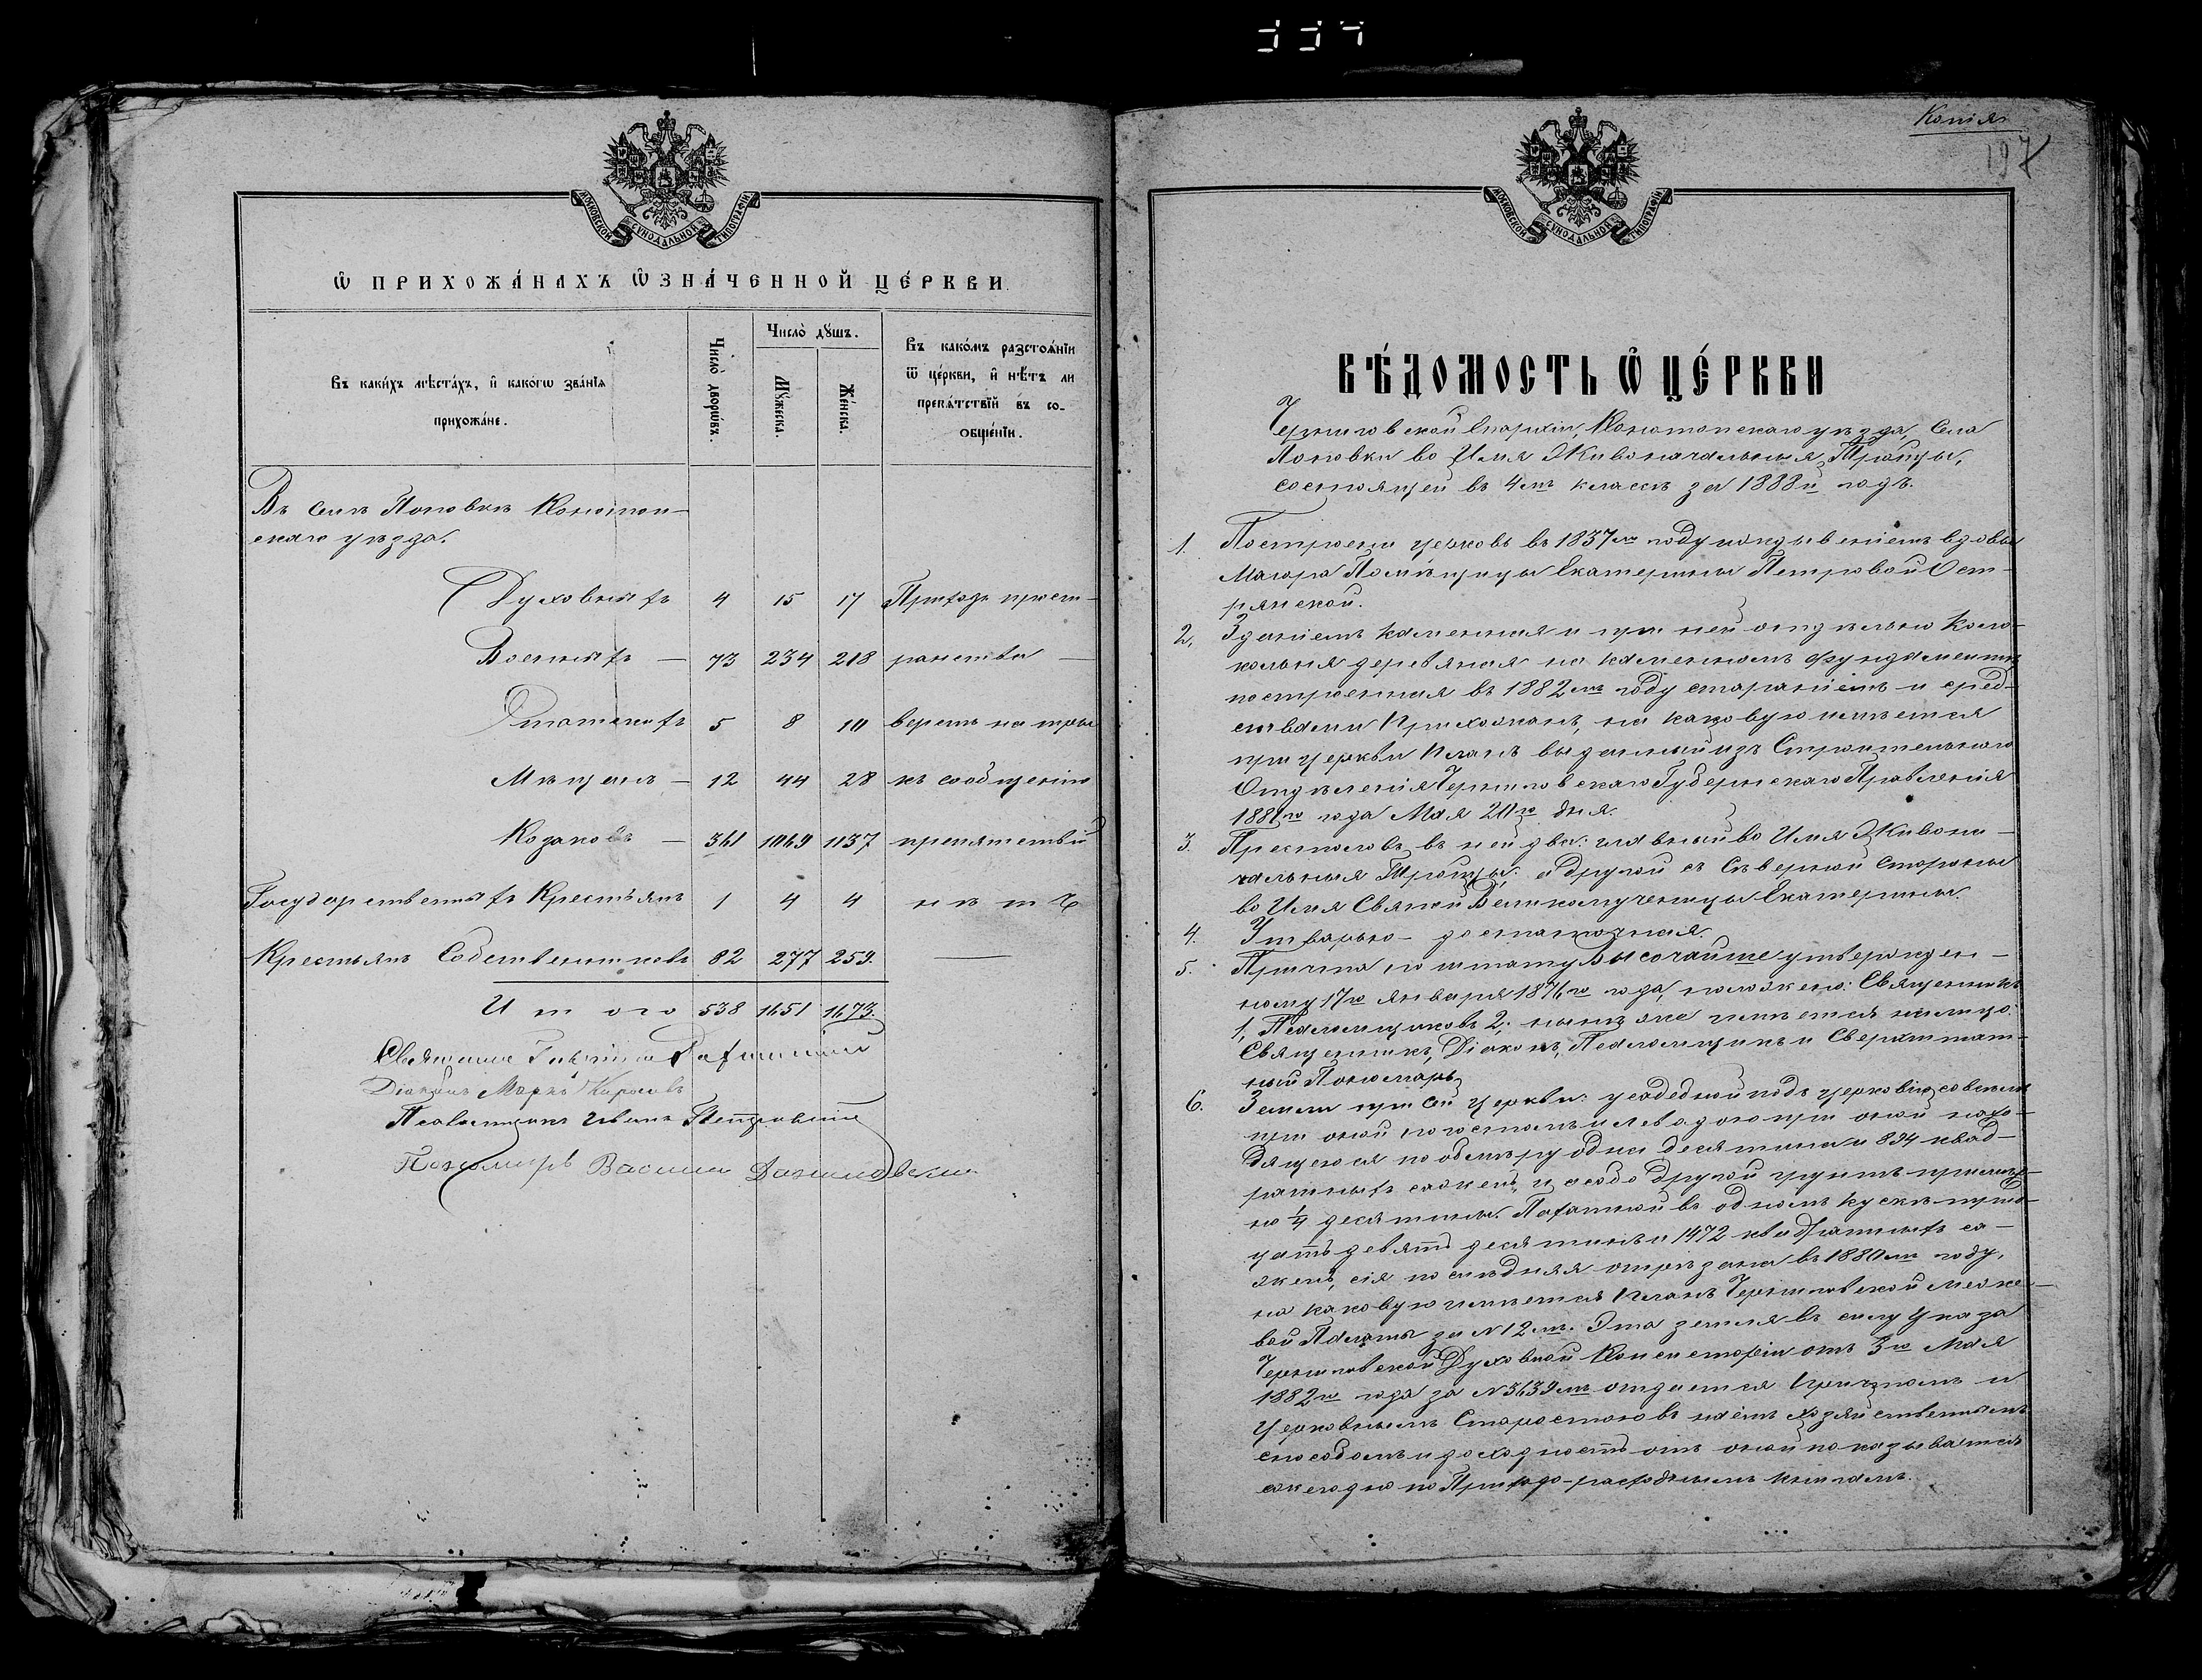 334
МОСКОВСКОЙ СѴНОДАЛЬНОЙ ТИПОГРАФІИ
Ѡ ПРИХОЖА́НАХЪ Ѡ҆ЗНА́ЧЕННОЙ ЦЕ́РКВИ.
Въ каки́хъ мѣста́хъ, и҆ како́гѡ зва́нїѧ
прихожа́не.
Число̀ дворѡ́въ.
Число̀ дꙋшъ.
Мꙋ́жеска.
Же́нска.
Въ како́мъ разстоѧ́нїи
ѿ це́ркви, и҆ нѣ́тъ ли
препѧ́тствїй въ со-
ѻбще́нїи.
Въ селѣ Поповкѣ Конотоп-
скаго уѣзда.
Духовныхъ 4 15 17 Приходъ прост-
Военныхъ — 73 234 218 ранства —
Статскихъ 5 8 10 верстъ на три
Мѣщанъ — 12 44 28 къ сообщенію
Козаковъ — 361 1069 1137 препятствій
Государственныхъ Крестьянъ 1 4 4 нѣтъ
Крестьянъ Собственниковъ 82 277 259. —
Итого 538 1651 1673.
Священникъ
Діаконъ Марко
Псаломщикъ Иванъ Петровскій
Пономарь Василій Даниловскій
Копія
197
МОСКОВСКОЙ СѴНОДАЛЬНОЙ ТИПОГРАФІИ
ВѢ́ДОМОСТЬ Ѡ҆ ЦЕ́РКВИ
Черниговской Епархіи, Конотопскаго уѣзда, Села
Поповки во Имя Живоначальныя Тройцы,
состоящей въ 4мъ классѣ за 1888й годъ.
1. Построена церковь въ 1837мъ году иждивеніемъ вдовы
Маіора Помѣщицы Екатерины Петровой Ост-
рянской.
2. Зданіемъ каменная и при ней отдѣльно коло-
кольня деревяная на каменномъ фундаментѣ,
построенная въ 1882мъ году стараніемъ и сред-
ствами Прихожанъ, на каковую имѣется
при церкви планъ выданный изъ Строительнаго
Отдѣленія Черниговскаго Губернскаго Правленія
1881го года Мая 20го дня.
3. Престоловъ въ ней два: главный во Имя Живона-
чальныя Тройцы; а другой съ Сѣверной Стороны
во Имя Святой Великомученицы Екатерины.
4. Утварью – достаточная.
5. Причта по штату Высочайше утвержден-
ному 17го января 1876го года, положено: Священникъ
1, Псаломщиковъ 2; нынѣ же имѣется налицо:
Священникъ, Діаконъ, Псаломщикъ и Сверхштат-
ный Пономарь.
6. Земли при сей церкви: усадебной подъ церковію совмѣстн
при оной погостомъ и левадою при оной нахо-
дящеюся по обмѣру одна десятина и 894 квад-
ратныхъ сажень, и особо другой грунтъ примѣр-
но ¼ десятины. Пахатной въ одномъ кускѣ трид-
цать девять десятинъ и 1472 квадратныхъ са-
жень, сія послѣдняя отрѣзана въ 1880мъ году,
на каковую имѣется планъ Черниговской меже-
вой Палаты за N 12мъ. Эта земля въ силу Указа
Черниговской Духовной Консисторіи отъ 3го Мая
1882го года за N 3639мъ отдается Причтомъ и
Церковнымъ Старостою въ наемъ хозяйственнымъ
способомъ и доходность отъ оной показывается
ежегодно по Приходо-расходнымъ книгамъ.